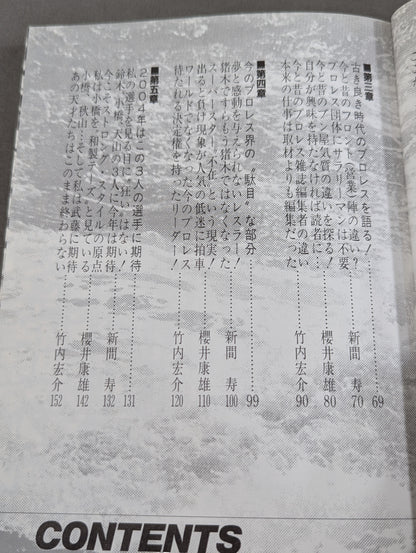 ■第三章
古き良き時代のプロレスを語る!……69
今と昔のフロント(営業)陣の違い?
プロレス団体にサラリーマンは不要……新間 寿 70
今と昔のレスラー気質の違いを探る!
自分が興味を持たなければ読者に………櫻井康雄 80
今と昔のプロレス雑誌編集者の違い
本来の仕事は取材よりも編集だった……竹内宏介 90
■第四章
今のプロレス界の〝駄目〟な部分……99
夢と感動を与えられないレスラー!
猪木ですらもう猪木ではなくなった……新間 寿 100
スーパースター不在という現実!
出ると負け現象が人気の低迷に拍車……櫻井康雄 110
ワールドでなくなった今のプロレス
待たれる決定権を持ったリーダー!……竹内宏介 120
■第五章
2004年はこの3人の選手に期待……131
私の選手を見る目に狂いはない!
鈴木、小橋、天山の3人に今年は期待……新間 寿 132
今こそストロング・スタイルの原点
私は小橋を〝和製テーズ〟と見ている……櫻井康雄 142
小橋、秋山…そして私は武藤に期待
あの天才たちはこのまま終わらない……竹内宏介 152
CONTENTS